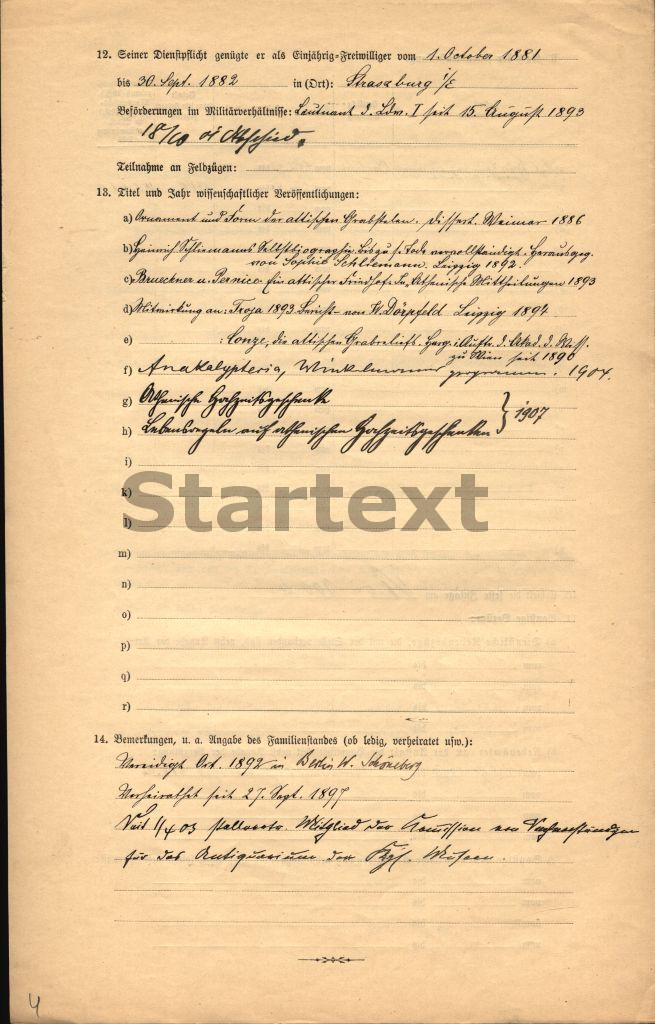 12. Seiner Dienstpflicht genügte er als Einjährig-Freiwilliger vom 1. October 1881
bis 30. Sept. 1882 in (Ort): Strassburg i/E
Beförderungen im Militärverhältnisse: Leutnant d. Ldw. I seit 15. August 1893
18/10 01 Abschied.
Teilnahme an Feldzügen:
13. Titel und Jahr wissenschaftlicher Veröffentlichungen:
a) Ornament und Form der attischen Grabstelen. Dissert. Weimar 1886
b) Heinrich Schliemanns Selbstbiographie bis zu s. Tode vervollständigt. Herausgeg.
von Sophie Schliemann. Leipzig 1892.
c) Brueckner u. Pernice: Ein attischer Friedhof. In Athenische Mittheilungen 1893
d) Mitwirkung an: Troja 1893 Bericht von W. Dörpfeld Leipzig 1894
e) : Conze, die attischen Grabreliefs. Hrg. i. Auftr. d. Akad. d. Wiss.
zu Wien seit 1890
f) Anakalypteria, Winkelmanns programm. 1904.
g) Athenische Hochzeitsgeschenke
} 1907
h) Lebensregeln auf athenischen Hochzeitsgeschenken
i)
k)
Startext
l)
m)
n)
o)
p)
q)
r)
14. Bemerkungen, u. a. Angabe des Familienstandes (ob ledig, verheiratet usw.):
Vereidigt Oct. 1892 in Berlin W. Schöneberg
Verheirathet seit 27. Sept. 1897
Seit 1/4 03 stellvertr. Mitglied der Komission von Sachverständigen
für das Antiquarium der Kgl. Museen.
4